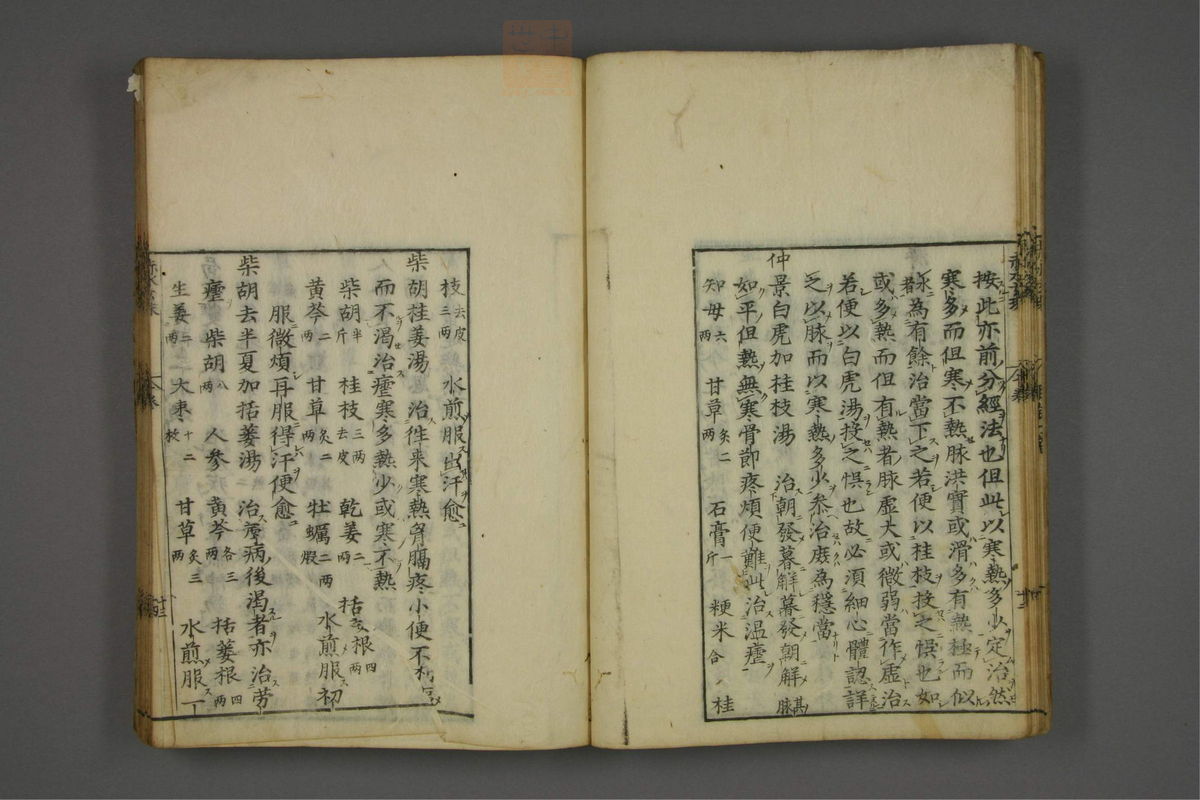 按此亦前分經法也但此以寒熱多少定治然
寒多而但寒不熱脉洪實或滑多有熱極而似
者為有餘治當下之若便以桂枝投之悞也如
或多熱而但有熱者脉虛大或微弱當作虛治
若便以白虎湯投之悞也故必須細心體認詳
之以脉而以寒熱多少參治庶為穩當
仲景白虎加桂枝湯 治朝發暮解暮發朝解脉
如平但熱無寒骨節疼煩便難此治温瘧
知母六兩 甘草炙二兩 石膏一斤 粳米八合 桂
枝去皮三兩 水煎服出汗愈
柴胡桂姜湯 治徃來寒熱胷膈疼小便不利
而不渴治瘧寒多熱少或寒不熱
柴胡半斤 桂枝三兩去皮 乾姜二兩 括蔞根四兩
黄芩二兩 甘草炙二兩 牡蠣二兩煆 水煎服初
服微煩再服得汗便愈
柴胡去半夏加括蔞湯 治瘧病後渴者亦治劳
瘧 柴胡八兩 人參 黄芩各三兩 括蔞根四兩
生姜二兩 大棗十二枚 甘草炙三兩 水煎服一